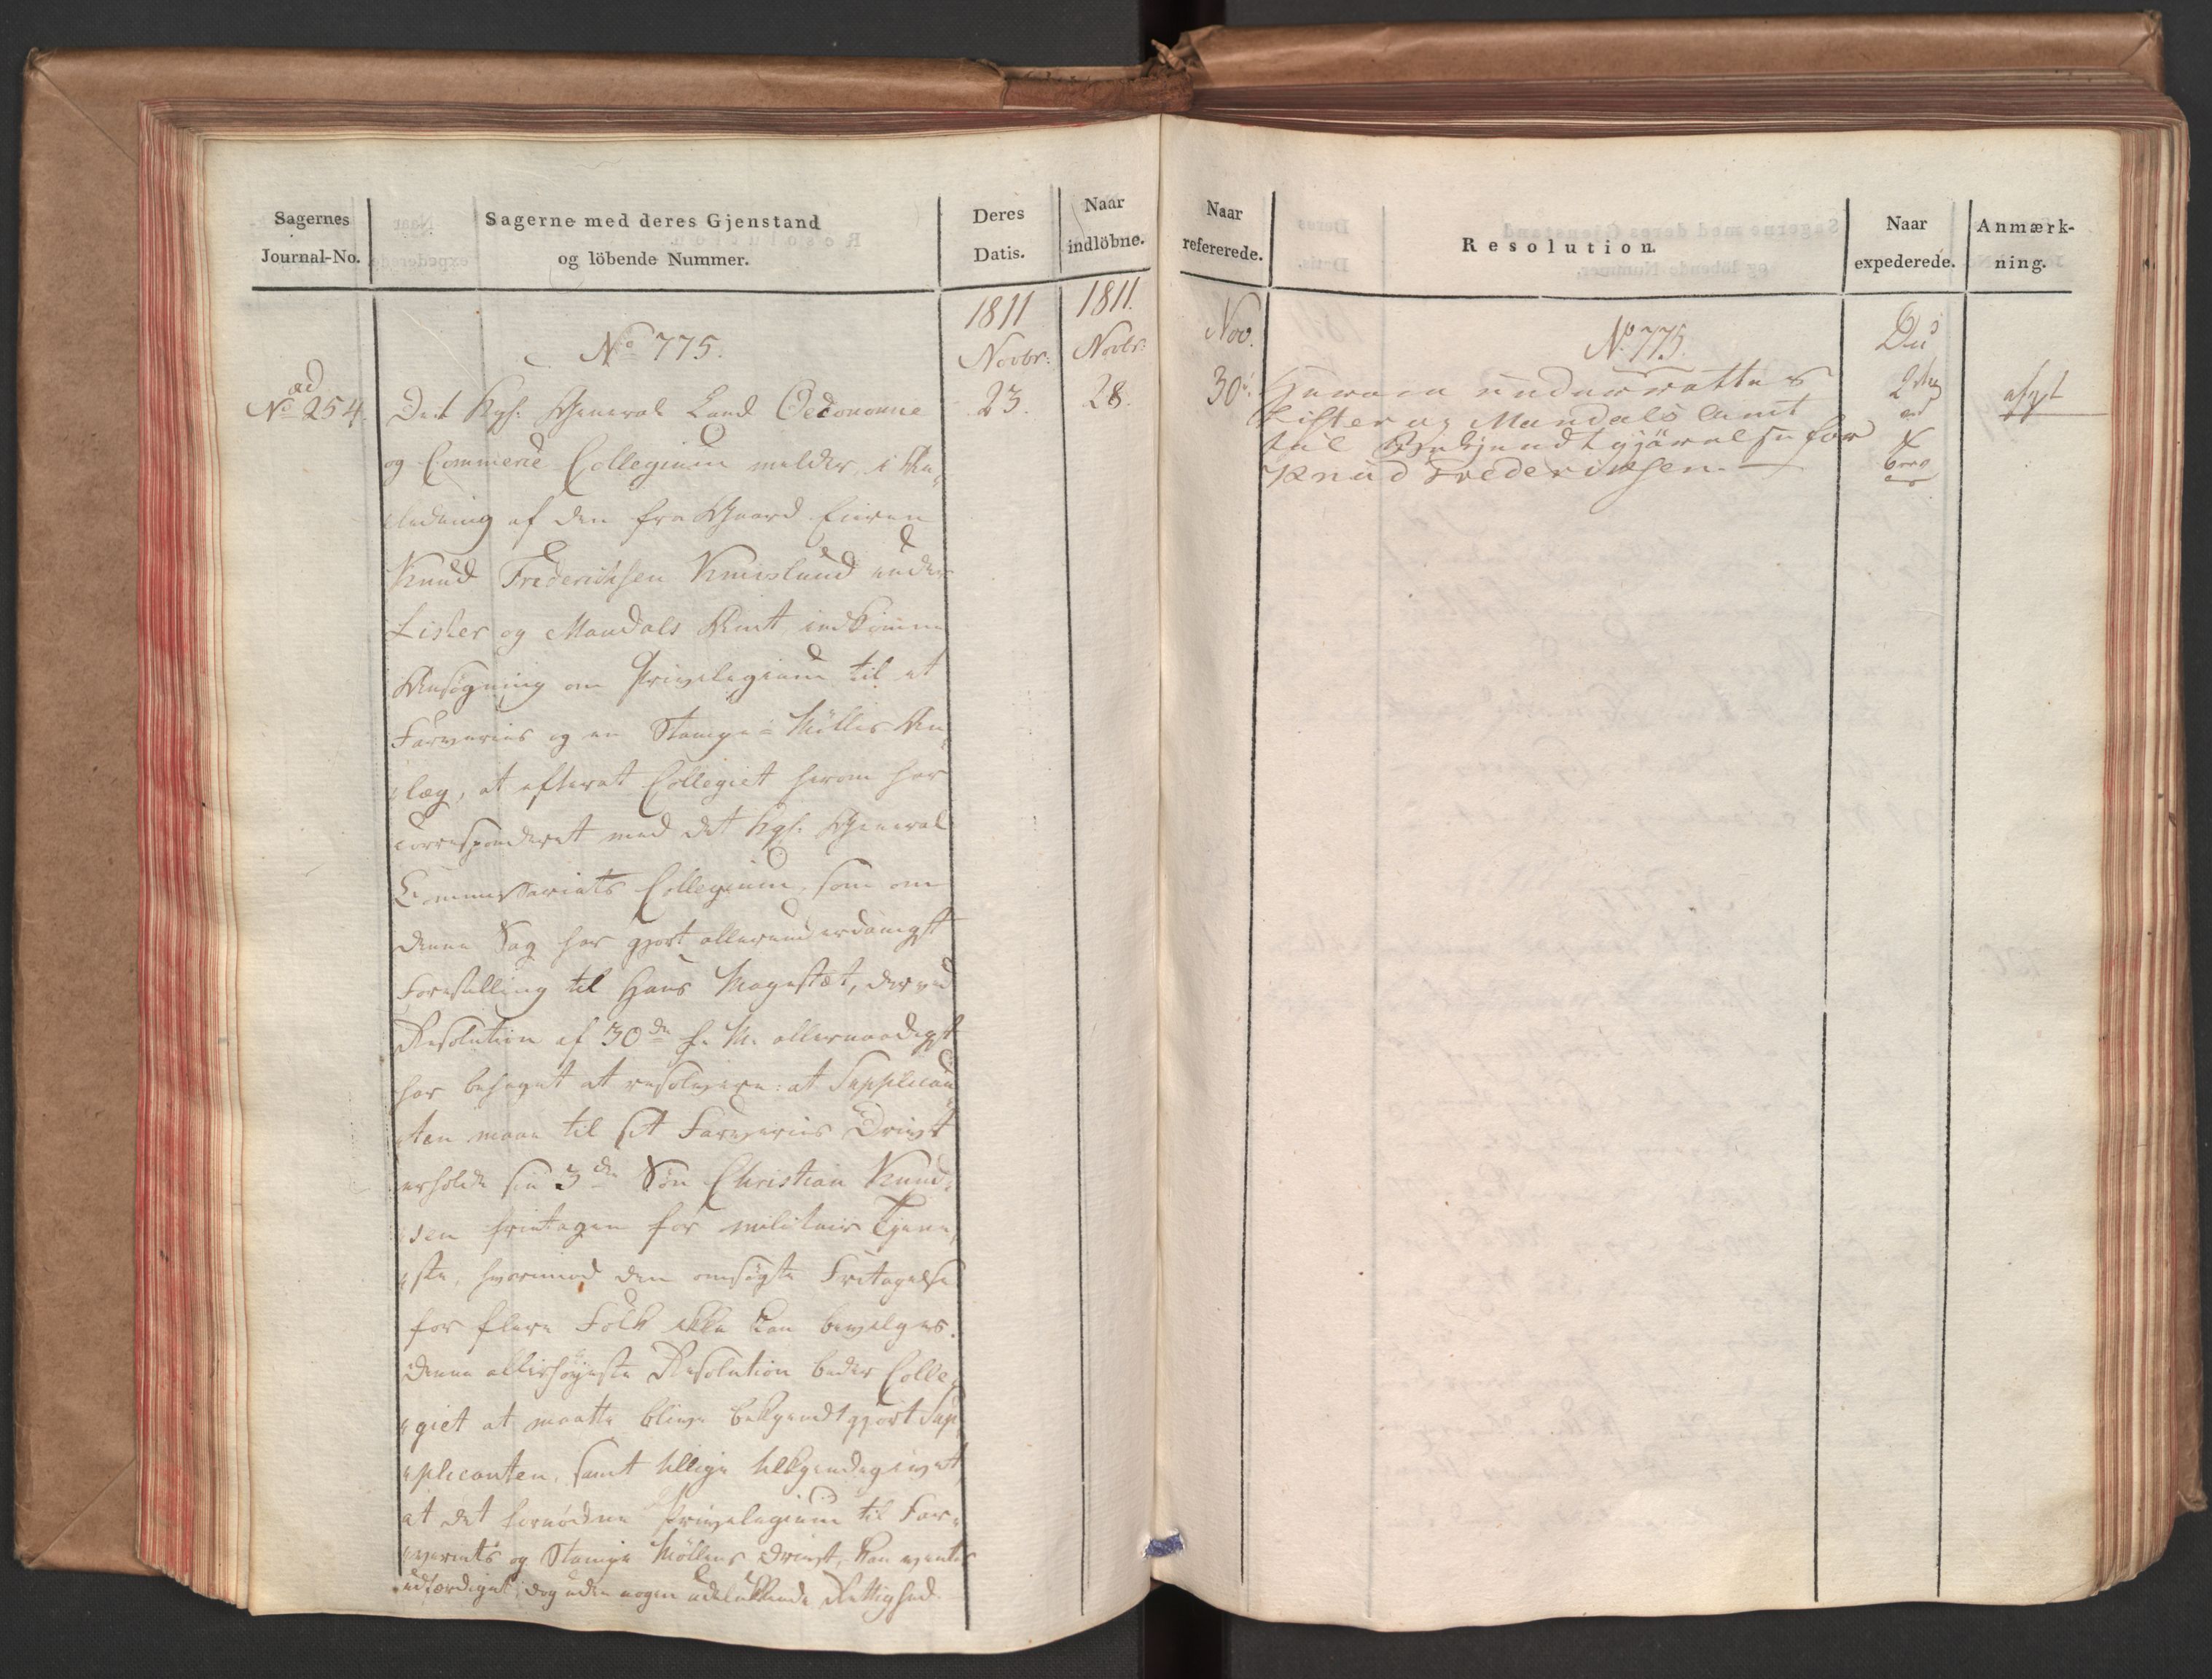 Sagernes
Journal-No.
Sagerne med deres Gjenstand
og löbende Nummer.
Deres
Datis.
Naar
indlöbne.
1811
1811.
Novbr:
Novbr:
No 775.
ad
No 254.
23.
28.
Det Kgl. General Land Oeconomie
og Commerce Collegium melder, i An-
ledning af den fra Gaard Eieren
Knud Frederichsen under
Lister og Mandals Amt indkomne
Ansögning om Privilegium til et
Farveries og en Stampe-Mölles An-
læg, at efterat Collegiet herom har
correspenderet med det Kgl. General
Commissariats Collegium, som om
denne Sag har gjort allerunderdanigst
Forestilling til Hans Majestæt, der ved
Resolution af 30de f. M. allernaadigst
har behaget at resolvere: at Supplican-
ten maae til sit Farveries Drivt
erholde sin 3die Sön Christian Knud-
sen fritagen for militair Tjene-
ste, hvorimod den ansögte Fritagelse
for flere Folk ikke kan bevilges.
Denne allerhöieste Resolution beder Colle-
giet at maatte blive bekjendtgjort Sup-
plicanten, samt tillige tilkjendegivet,
at det fornödne Privelegium til Far-
veriets og Stampe Möllens Drivt, kan ventes
udfærdiget, dog uden nogen udelukkende Rettighed.
Naar
refererede.
Resolution.
Naar
expederede.
Anmærk-
ning.
Nov.
30
No 775.
Herom underrettes
Lister og Mandals Amt
til Bekjendtgjörelse for
Knud Frederichsen.